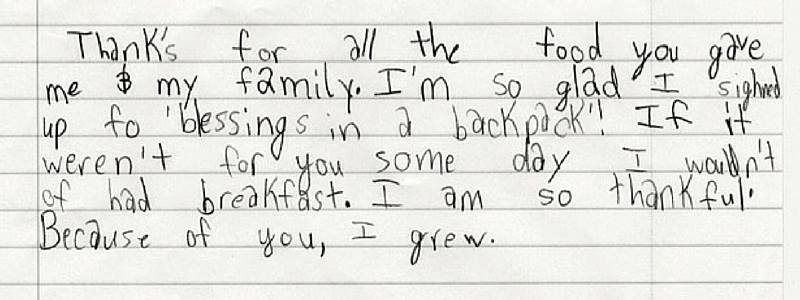 Thank's for all the food you gave
me & my family. I'm so glad I sighned
up fo 'blessings in a backpack'! If it
weren't for you some day I wouldn't
of had breakfast. I am so thankful.
Because of you, I grew.